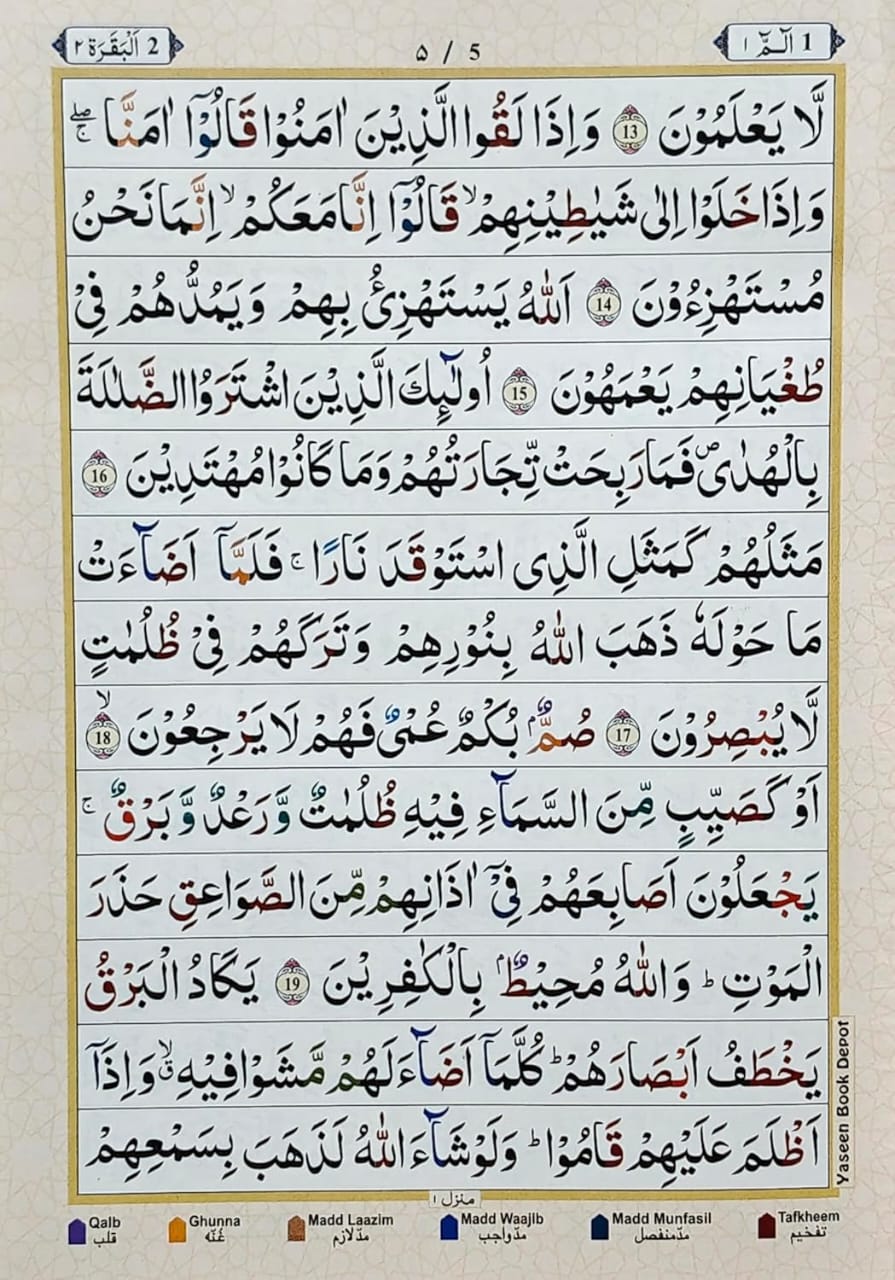 1 الٓمّٓ ١
5 / ۵
2 اَلْبَقَرَة ٢
لَّا یَعْلَمُوْنَ 13 وَاِذَا لَقُوا الَّذِیْنَ اٰمَنُوْا قَالُوْۤا اٰمَنَّا ۖۚ
وَاِذَا خَلَوْا اِلٰى شَیٰطِیْنِهِمْ ۙ قَالُوْۤا اِنَّا مَعَكُمْ ۙ اِنَّمَا نَحْنُ
مُسْتَهْزِءُوْنَ 14 اَللّٰهُ یَسْتَهْزِئُ بِهِمْ وَیَمُدُّهُمْ فِیْ
طُغْیَانِهِمْ یَعْمَهُوْنَ 15 اُولٰٓىِٕكَ الَّذِیْنَ اشْتَرَوُا الضَّلٰلَةَ
بِالْهُدٰى ۪ فَمَا رَبِحَتْ تِّجَارَتُهُمْ وَمَا كَانُوْا مُهْتَدِیْنَ 16
مَثَلُهُمْ كَمَثَلِ الَّذِی اسْتَوْقَدَ نَارًا ۚ فَلَمَّاۤ اَضَآءَتْ
مَا حَوْلَهٗ ذَهَبَ اللّٰهُ بِنُوْرِهِمْ وَتَرَكَهُمْ فِیْ ظُلُمٰتٍ
لَّا یُبْصِرُوْنَ 17 صُمٌّۢ بُكْمٌ عُمْیٌ فَهُمْ لَا یَرْجِعُوْنَ 18 ۙ
اَوْ كَصَیِّبٍ مِّنَ السَّمَآءِ فِیْهِ ظُلُمٰتٌ وَّرَعْدٌ وَّبَرْقٌ ۚ
یَجْعَلُوْنَ اَصَابِعَهُمْ فِیْۤ اٰذَانِهِمْ مِّنَ الصَّوَاعِقِ حَذَرَ
الْمَوْتِ ؕ وَاللّٰهُ مُحِیْطٌۢ بِالْكٰفِرِیْنَ 19 یَكَادُ الْبَرْقُ
یَخْطَفُ اَبْصَارَهُمْ ؕ كُلَّمَاۤ اَضَآءَ لَهُمْ مَّشَوْا فِیْهِ ۙۗ وَاِذَاۤ
اَظْلَمَ عَلَیْهِمْ قَامُوْا ؕ وَلَوْ شَآءَ اللّٰهُ لَذَهَبَ بِسَمْعِهِمْ
Yaseen Book Depot
منزل ١
Qalb
قلب
Ghunna
غُنّه
Madd Laazim
مدّلازم
Madd Waajib
مدّواجب
Madd Munfasil
مدّمنفصل
Tafkheem
تفخیم